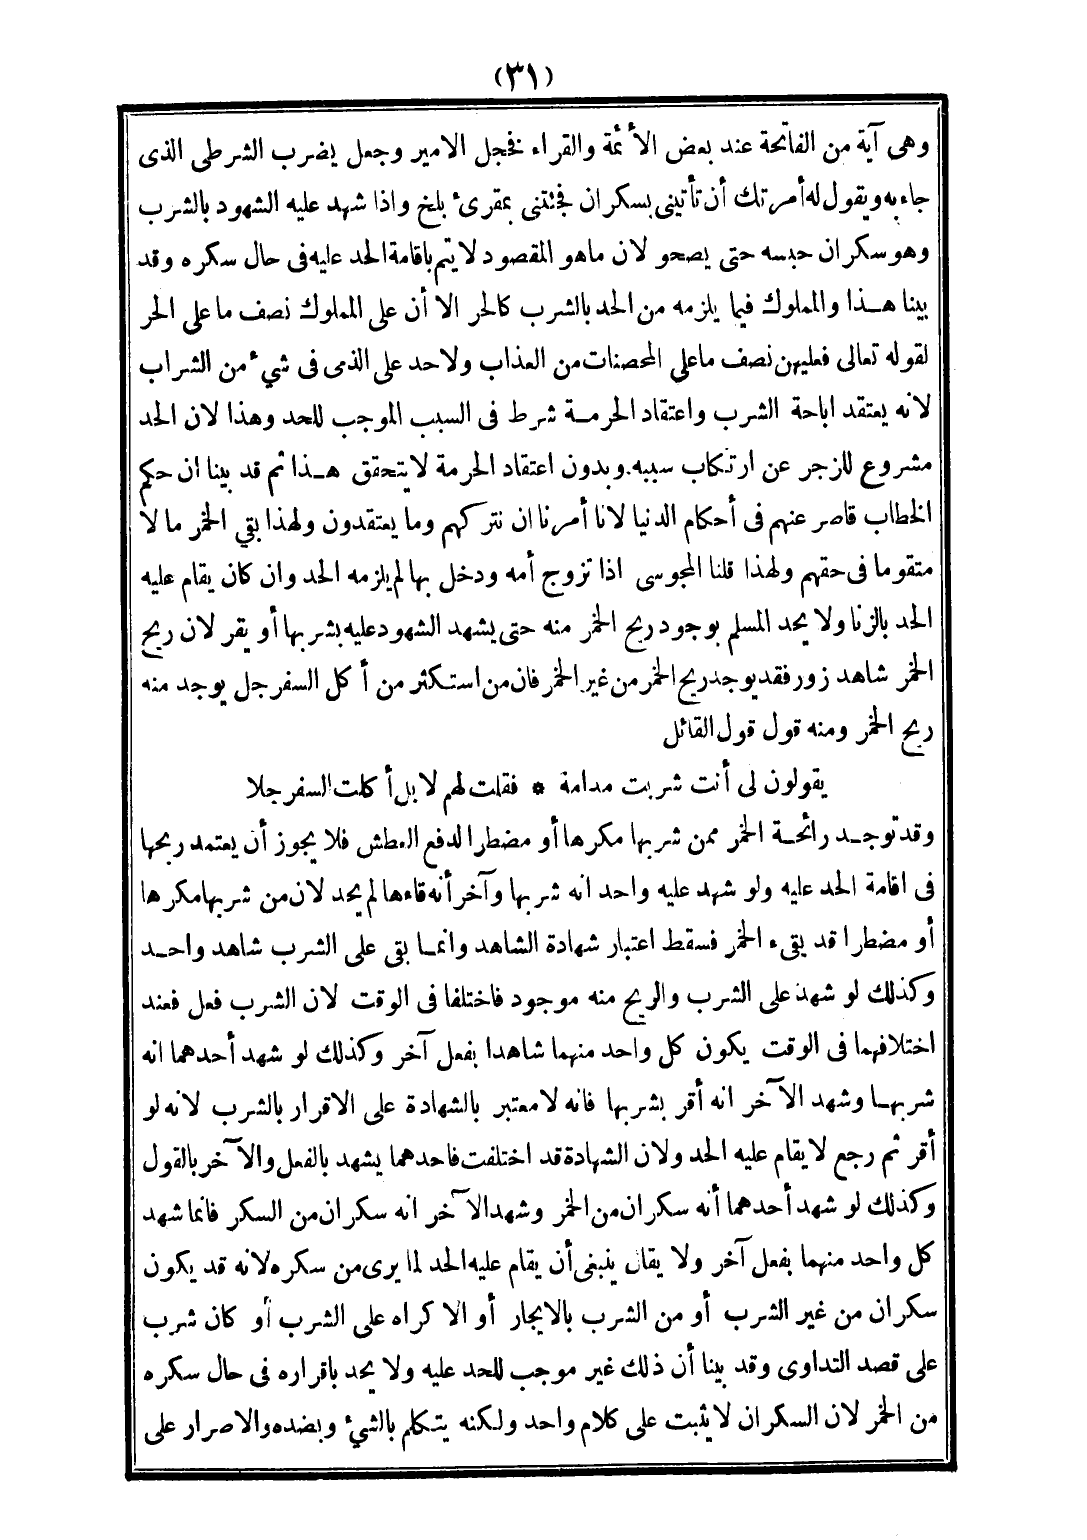 (٣١)
وهى آية من الفاتحة عند بعض الأئمة والقراء فخجل الامير وجعل يضرب الشرطى الذى
جاء به ويقول له أمرتك أن تأتينى بسكران فجئتنى بمقرئ بلخ واذا شهد عليه الشهود بالشرب
وهو سكران حبسه حتى يصحو لان ماهو المقصود لا يتم باقامة الحد عليه فى حال سكره وقد
بينا هـذا والمملوك فيما يلزمه من الحد بالشرب كالحر الا أن على المملوك نصف ما على الحر
لقوله تعالى فعليهن نصف ماعلى المحصنات من العذاب ولا حد على الذمى فى شىء من الشراب
لانه يعتقد اباحة الشرب واعتقاد الحرمـة شرط فى السبب الموجب للحد وهذا لان الحد
مشروع للزجر عن ارتكاب سببه وبدون اعتقاد الحرمة لا يتحقق هـذا ثم قد بينا ان حكم
الخطاب قاصر عنهم فى أحكام الدنيا لانا أمرنا ان نتركهم وما يعتقدون ولهذا بقي الخمر مالا
متقوما فى حقهم ولهذا قلنا المجوسى اذا تزوج أمه ودخل بها لم يلزمه الحد وان كان يقام عليه
الحد بالزنا ولا يحد المسلم بوجود ريح الخمر منه حتى يشهد الشهود عليه بشربها أو يقر لان ريح
الخمر شاهد زور فقد يوجد ريح الخمر من غير الخمر فان من استكثر من أكل السفرجل يوجد منه
ريح الخمر ومنه قول قول القائل
يقولون لى أنت شربت مدامة * فقلت لهم لا بل أكلت السفرجلا
وقد توجـد رائحـة الخمر ممن شربها مكرها أو مضطرا لدفع العطش فلا يجوز أن يعتمد ريحها
فى اقامة الحد عليه ولو شهد عليه واحد انه شربها وآخر أنه قاءها لم يحد لان من شربها مكرها
أو مضطرا قد يقىء الخمر فسقط اعتبار شهادة الشاهد وانمـا بقى على الشرب شاهد واحـد
وكذلك لو شهد على الشرب والريح منه موجود فاختلفا فى الوقت لان الشرب فعل فعند
اختلافهما فى الوقت يكون كل واحد منهما شاهدا بفعل آخر وكذلك لو شهد أحدهما انه
شربهـا وشهد الآخر انه أقر بشربها فانه لا معتبر بالشهادة على الاقرار بالشرب لانه لو
أقر ثم رجع لا يقام عليه الحد ولان الشهادة قد اختلفت فاحدهما يشهد بالفعل والآخر بالقول
وكذلك لو شهد أحدهما أنه سكران من الخمر وشهد الآخر انه سكران من السكر فانما شهد
كل واحد منهما بفعل آخر ولا يقال ينبغى أن يقام عليه الحد لما يرى من سكره لانه قد يكون
سكران من غير الشرب أو من الشرب بالايجار أو الاكراه على الشرب أو كان شرب
على قصد التداوى وقد بينا أن ذلك غير موجب للحد عليه ولا يحد باقراره فى حال سكره
من الخمر لان السكران لا يثبت على كلام واحد ولكنه يتكلم بالشىء وبضده والاصرار على